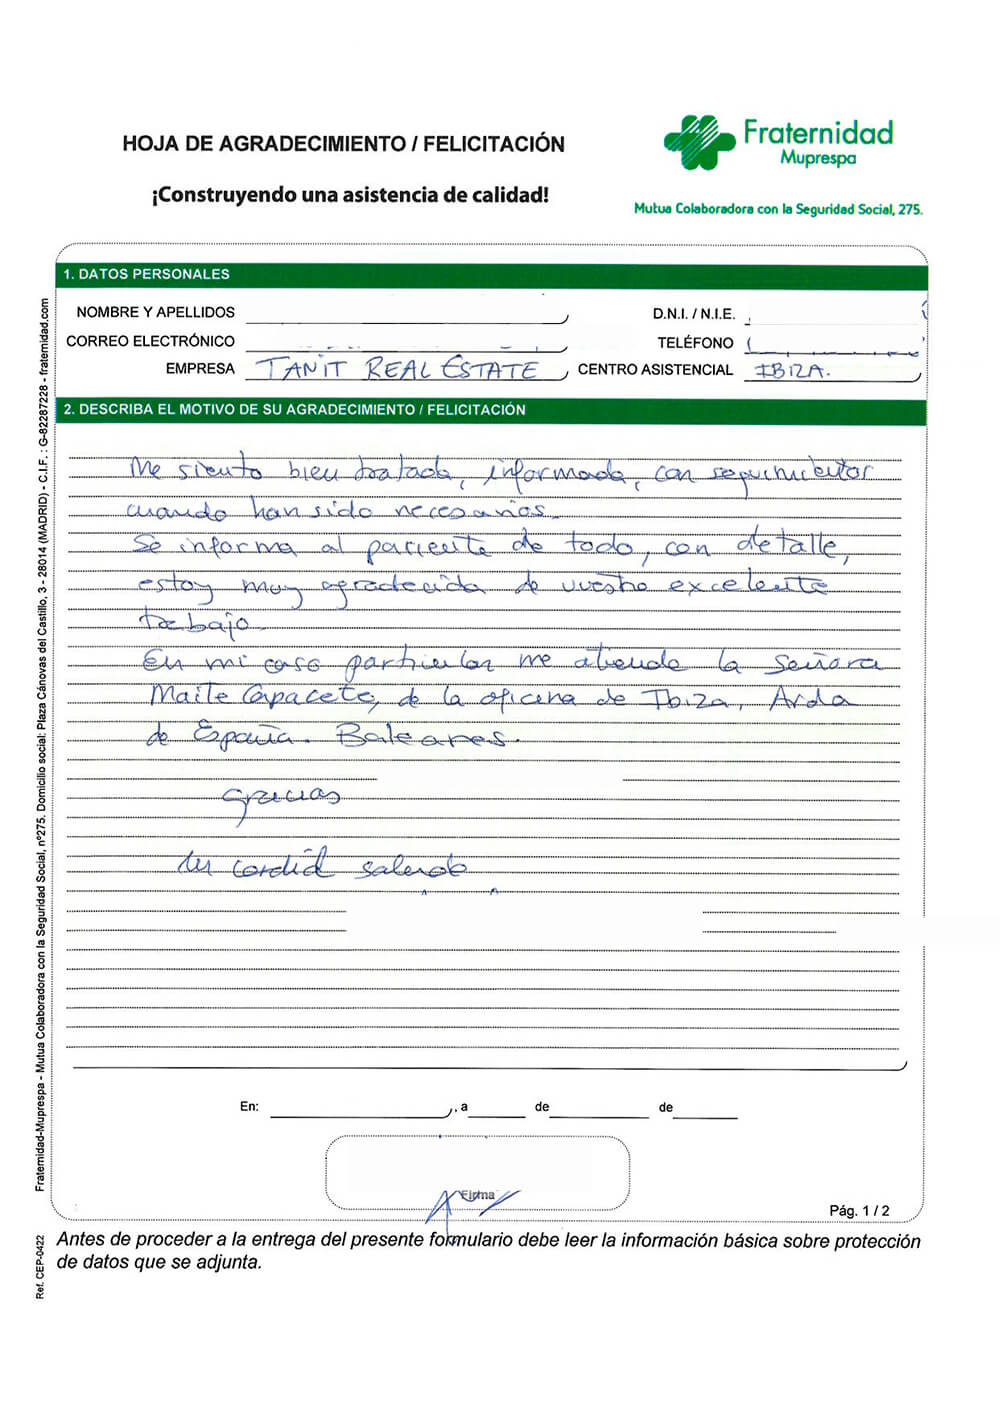 HOJA DE AGRADECIMIENTO / FELICITACIÓN
¡Construyendo una asistencia de calidad!
Fraternidad
Muprespa
Mutua Colaboradora con la Seguridad Social, 275.
1. DATOS PERSONALES
NOMBRE Y APELLIDOS
D.N.I. / N.I.E.
CORREO ELECTRÓNICO
TELÉFONO
EMPRESA TANIT REAL ESTATE CENTRO ASISTENCIAL IBIZA.
2. DESCRIBA EL MOTIVO DE SU AGRADECIMIENTO / FELICITACIÓN
Me siento bien tratada, informada, con
cuando han sido necesarios.
Se informa al paciente de todo, con detalle,
estoy muy agradecida de vuestro excelente
trabajo.
En mi caso particular me atiende la Señora
Maite Capacete, de la oficina de Ibiza, Avda
de España. Baleares.
Gracias
Un cordial saludo
En: , a de de
Firma
Pág. 1 / 2
Antes de proceder a la entrega del presente formulario debe leer la información básica sobre protección
de datos que se adjunta.
Fraternidad-Muprespa - Mutua Colaboradora con la Seguridad Social, nº275. Domicilio social: Plaza Cánovas del Castillo, 3 - 28014 (MADRID) - C.I.F. : G-82287228 - fraternidad.com
Ref. CEP-0422